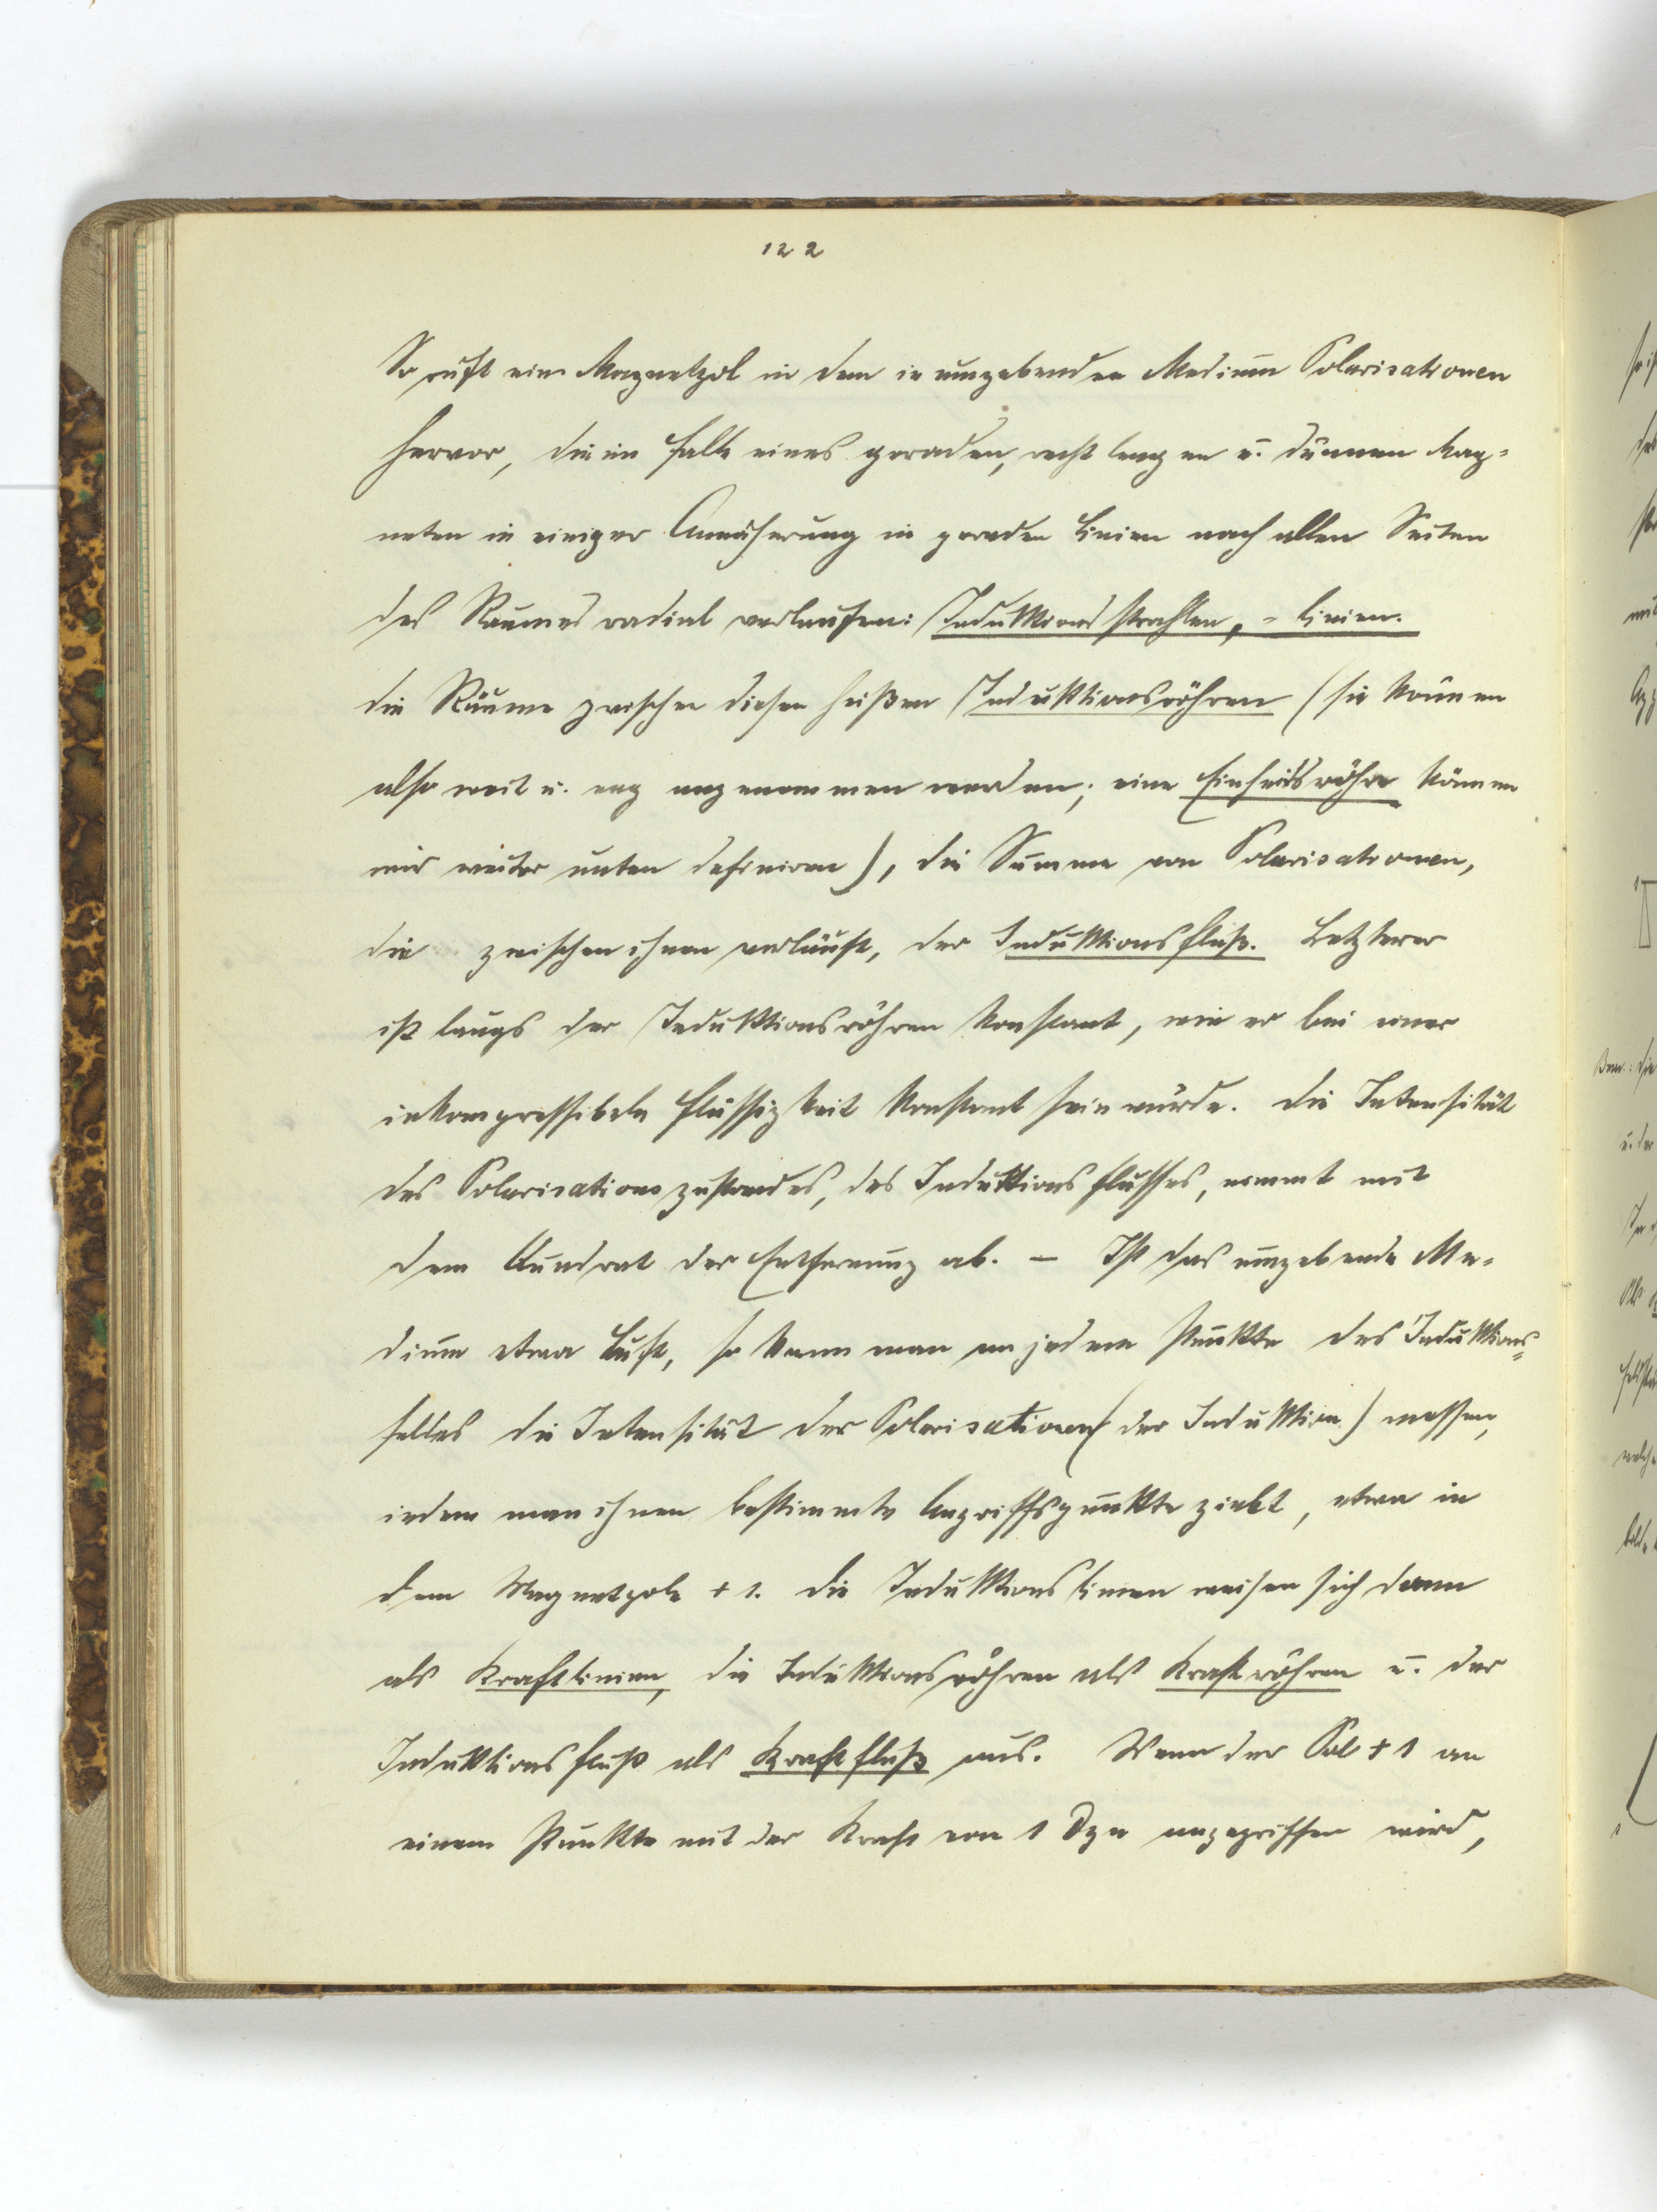 122
So ruft ein Magnetpol in dem ie umgebenden Medium Polarisationen
hervor, die im Falle eines geraden, recht langen u. dünnen Mag-
neten in einiger Annäherung in geraden Linien nach allen Seiten
des Raumes radial verlaufen: Induktionsstrahlen, - linien.
die Räume zwischen diesen heißen Induktionsröhren (sie können
also weit u. eng angenommen werden; eine Einheitsröhre können
wir weiter unten definieren), die Summe von Polarisationen,
die zwischen ihnen verläuft, der Induktionsfluß. Letzterer
ist längs der Induktionsröhren konstant, wie er bei einer
inkompressibeln Flüssigkeit konstant sein würde. die Intensität
des Polarisationszustandes, des Induktionsflusses, nimmt mit
dem Quadrat der Entfernung ab. — Ist das umgebende Me-
dium etwa Luft, so kann man an jedem Punkte des Induktions-
feldes die Intensität der Polarisationen (der Induktion) messen,
indem man ihnen bestimmte Angriffspunkte giebt, etwa in
dem Magnetpole + 1. die Induktionslinien weisen sich dann
als Kraftlinien, die Induktionsröhren als Kraftröhren u. der
Induktionsfluß als Kraftfluß aus. Wenn der Pol + 1 an
einem Punkte mit der Kraft von 1 Dyn angegriffen wird,